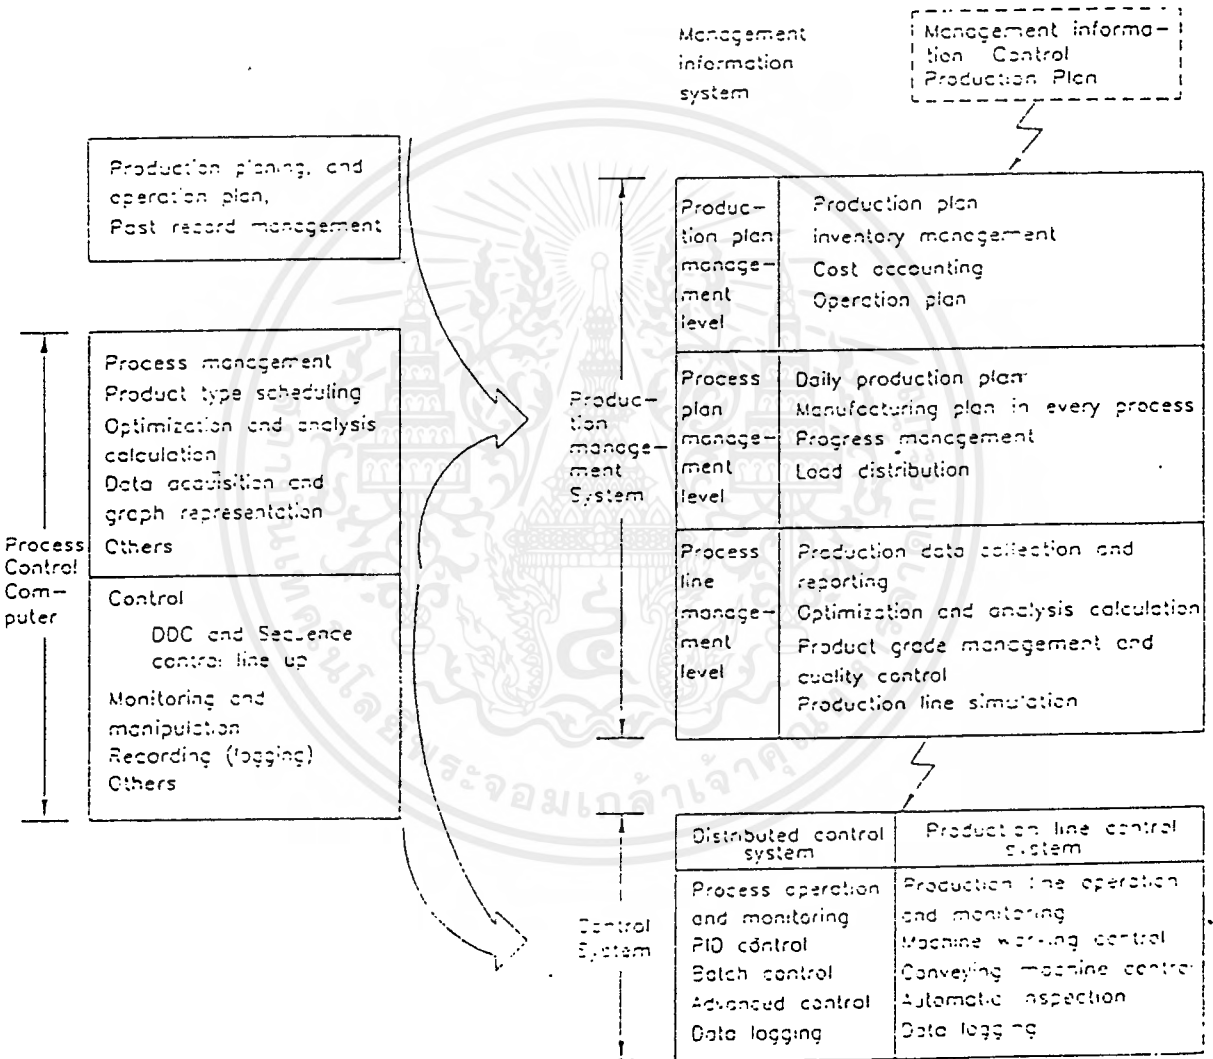 Management
information
system
Management informa-
tion Control
Production Plan
Production planing, and
operation plan,
Past record management
Process management
Product type scheduling
Optimization and analysis
calculation
Data acquisition and
graph representation
Others
Process
Control
Com-
puter
Control
DDC and Sequence
control line up
Monitoring and
manipulation
Recording (logging)
Others
Produc-
tion
manage-
ment
System
Produc-
tion plan
manage-
ment
level
Production plan
inventory management
Cost accounting
Operation plan
Process
plan
manage-
ment
level
Daily production plan
Manufacturing plan in every process
Progress management
Load distribution
Process
line
manage-
ment
level
Production data collection and
reporting
Optimization and analysis calculation
Product grade management and
quality control
Production line simulation
Control
System
Distributed control
system
Process operation
and monitoring
PID control
Batch control
Advanced control
Data logging
Production line control
system
Production line operation
and monitoring
Machine working control
Conveying machine control
Automatic inspection
Data logging
พระจอมเกล้าเจ้าคุณ